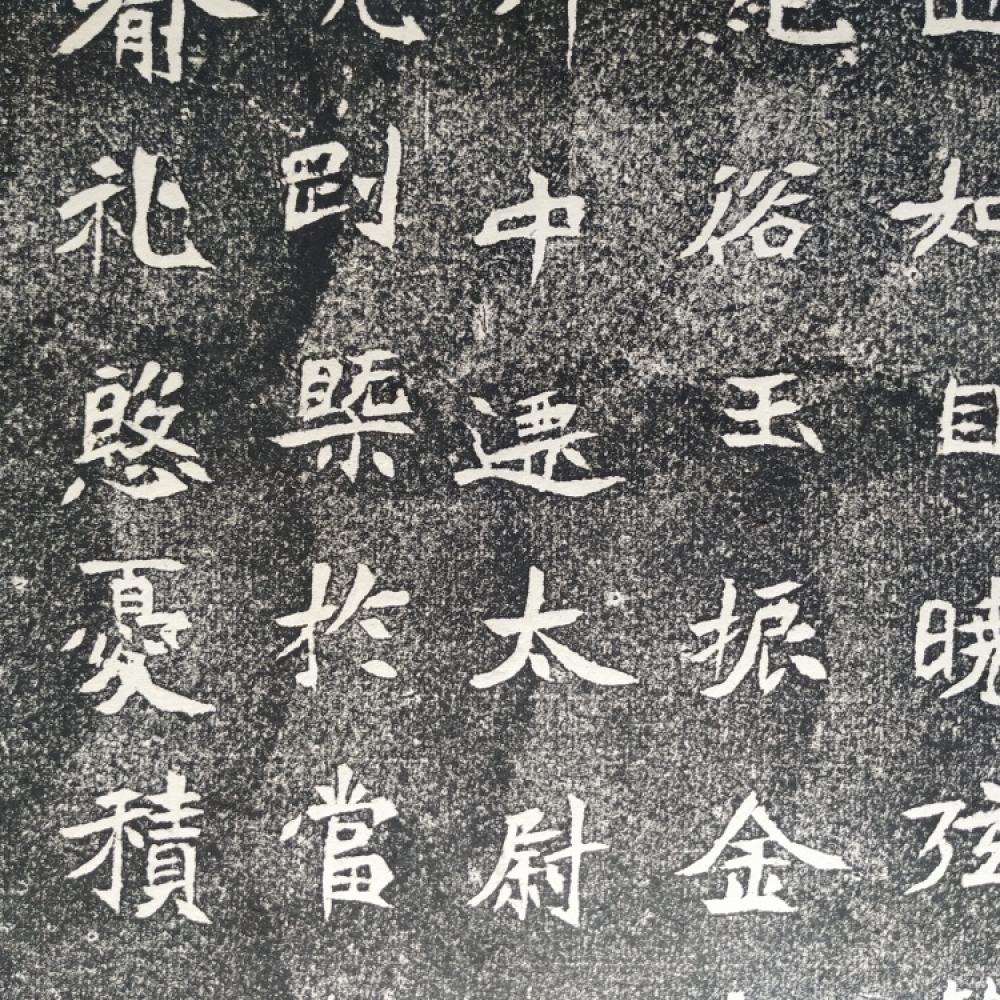 如目曉弦
俗玉振金
中遷太尉
剛槩於當
礼慇憂積